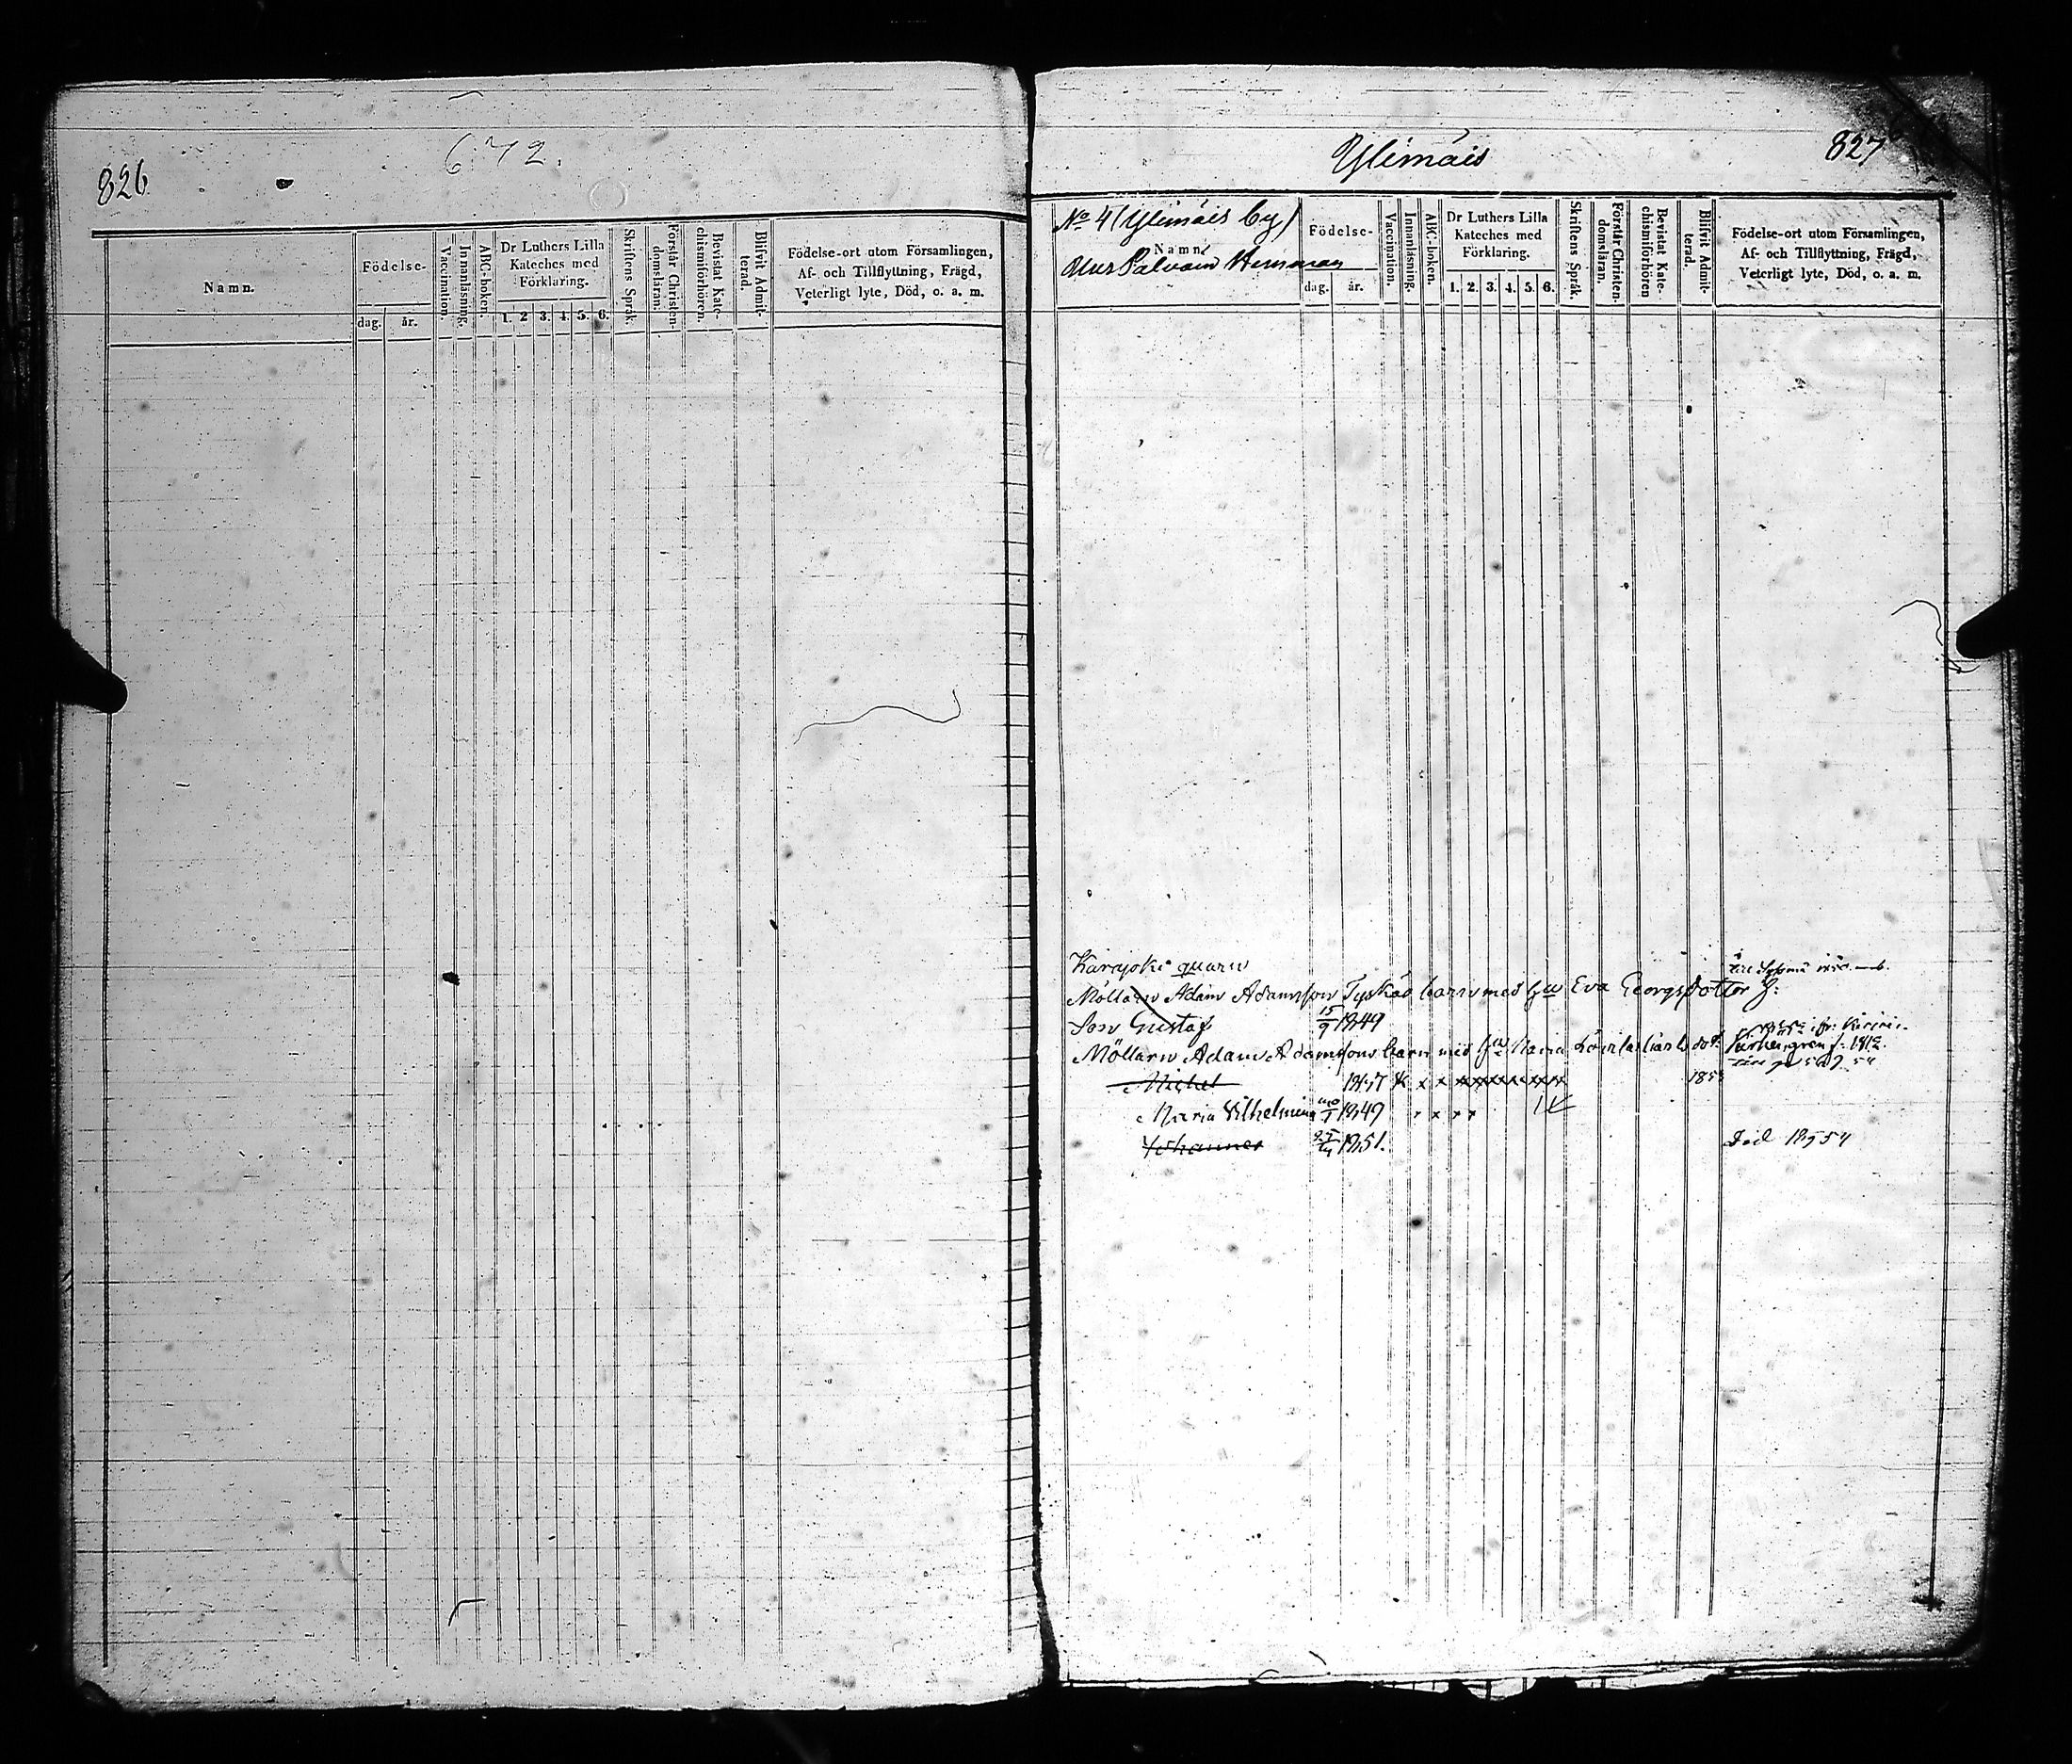 826
672.
Namn.
Födelse-
dag. år.
Vaccination.
Innanläsning.
ABC-boken.
Dr Luthers Lilla
Kateches med
Förklaring.
1. 2 3. 4. 5. 6.
Skriftens Språk.
Förstår Christen-
domsläran.
Bevistat Kate-
chismiförhören.
Blifvit Admit-
terad.
Födelse-ort utom Församlingen,
Af- och Tillflyttning, Frägd,
Veterligt lyte, Död, o. a. m.
Ylimäis
827
No 4 (Ylimäis by)
Namn.
Hemman
Födelse-
dag. år.
Vaccination.
Innanläsning.
ABC-boken.
Dr Luthers Lilla
Kateches med
Förklaring.
1. 2. 3. 4. 5. 6.
Skriftens Språk.
Förstår Christen-
domsläran.
Bevistat Kate-
chismiförhören
Blifvit Admit-
terad.
Födelse-ort utom Församlingen,
Af- och Tillflyttning, Frägd,
Veterligt lyte, Död, o. a. m.
Karajoki quarn
Möllarn Adam Adamsson Tyskas barn med Eva Georgsdotter
Son Gustaf 15/9 1849
Möllarn Adam Adamssons barn med Maria
Michel 1847
Maria Vilhelmina 1849
Johannes 1851.
Död